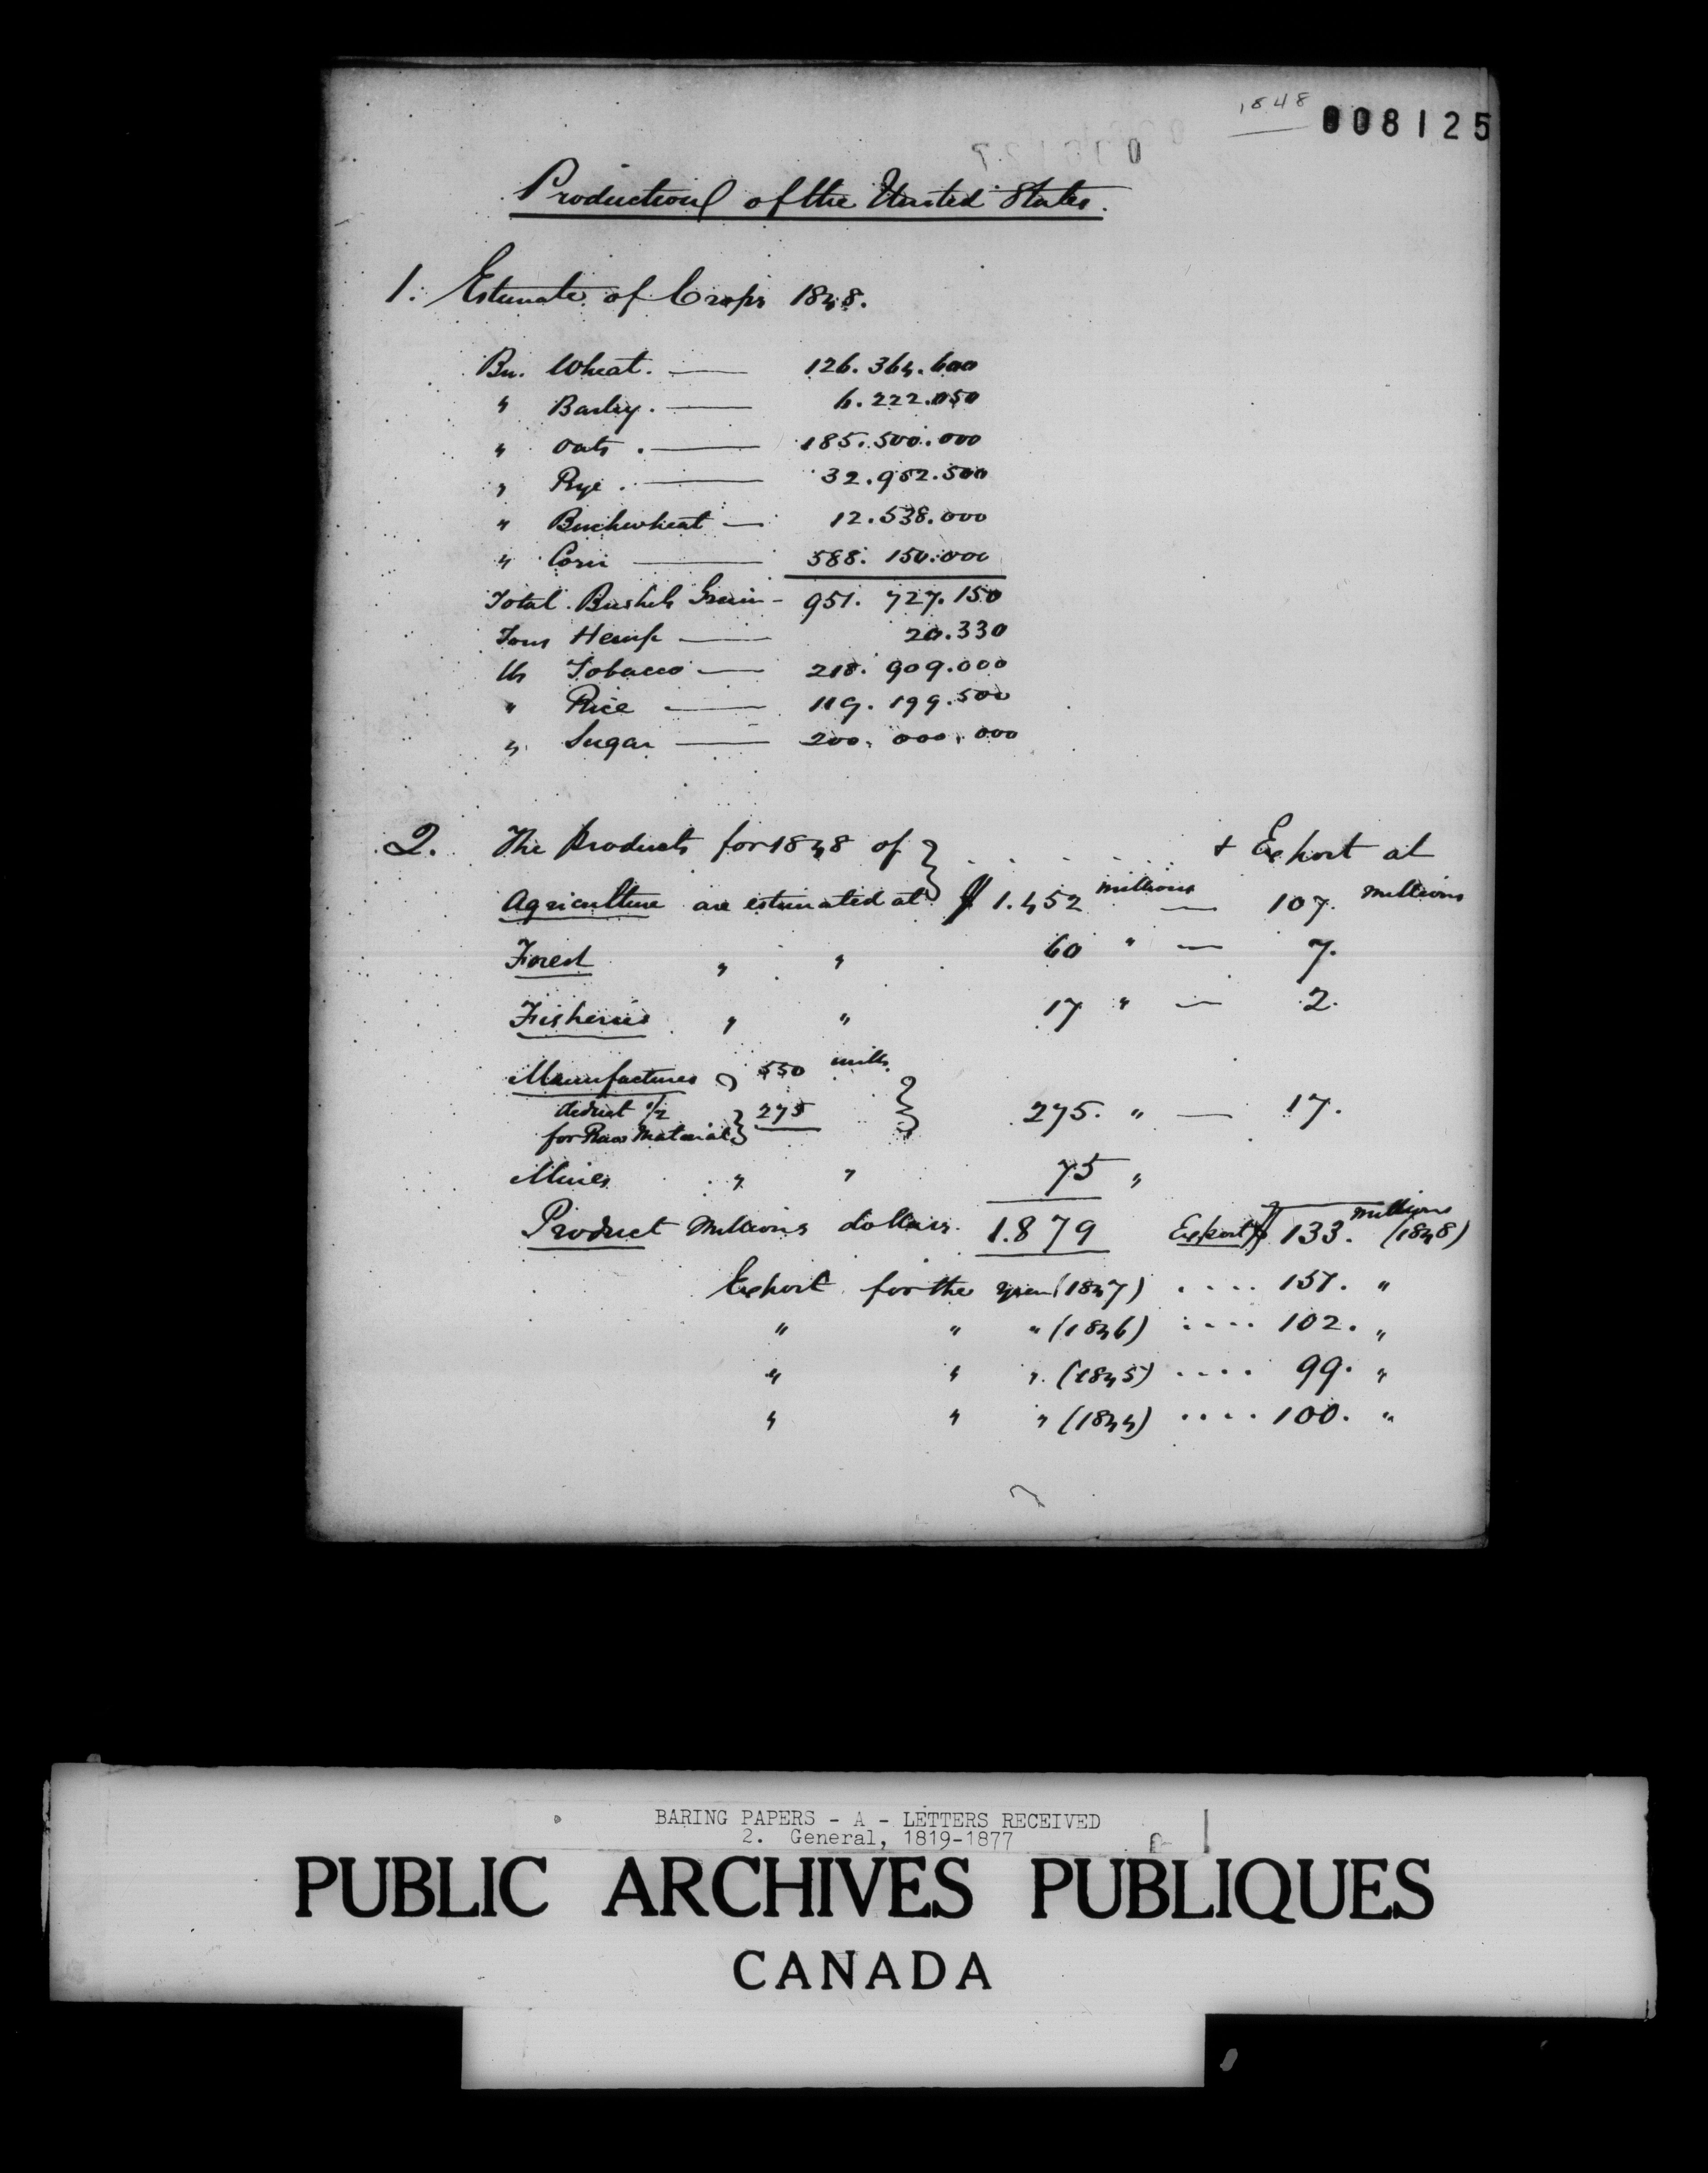 1848
008125
Productions of the United States.
1. Estimate of Crops 1848.
Bu. Wheat. — 126.364.600
" Barley. — 6.222.050
" Oats. — 185.500.000
" Rye. — 32.952.500
" Buckwheat — 12.538.000
" Corn — 588.150.000
Total Bushels Grain - 951.727.150
Tons Hemp — 20.330
lb Tobacco — 218.909.000
" Rice — 119.199.500
" Sugar — 200,000,000
2. The Products for 1848 of } + Export at
Agriculture are estimated at } $ 1.452 millions — 107. millions
Forest " " 60 " — 7.
Fisheries " " 17 " — 2.
Manufactures } 550 mills
deduct 1/2 } 275 } 275. " — 17.
for Raw Material }
Mines " " 75 "
Product Millions dollars. 1.879 Export $ 133. millions (1848)
Export for the year (1847) .... 157. "
" " " (1846) .... 102. "
" " " (1845) .... 99. "
" " " (1844) .... 100. "
BARING PAPERS - A - LETTERS RECEIVED
2. General, 1819-1877
PUBLIC ARCHIVES PUBLIQUES
CANADA